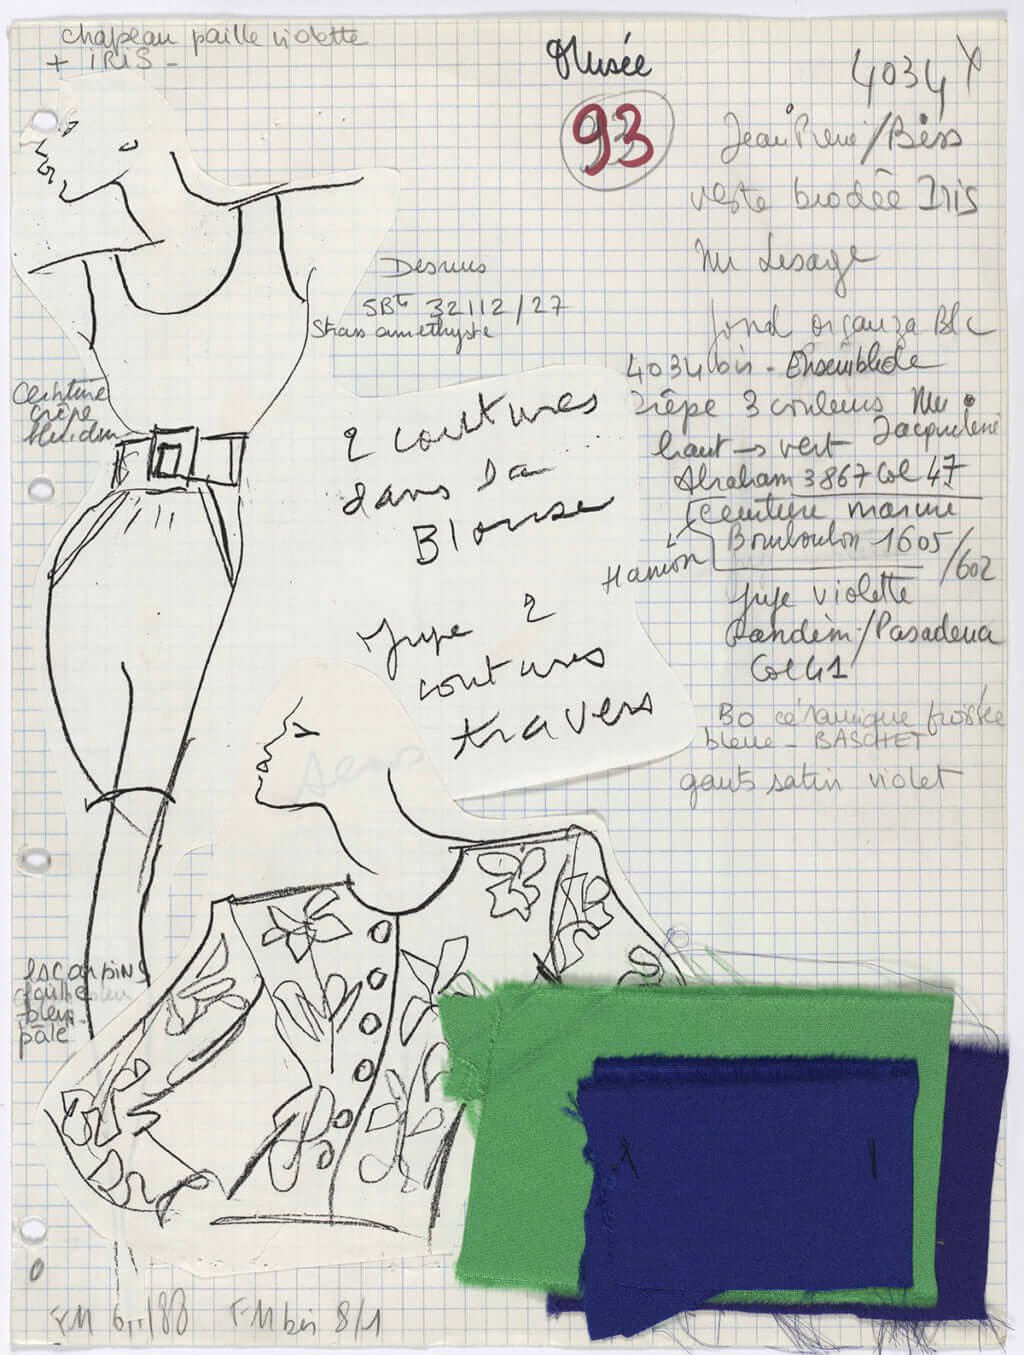 chapeau paille violette
+ IRIS -
Musée
93
4034
Jean Pierre/Béss
veste brodée Iris
Mr Lesage
fond organza Blc
Dessous
32112/27
Strass améthyste
4034 bis - Ensemble de
crêpe 3 couleurs Mr
Jacqueline
haut → vert
Abraham 3867 Col 47
ceinture marine
Bouboulon 1605/602
Hamon
jupe violette
/Pasadena
Col 41
Bo céramique froissée
bleue - BASCHET
gants satin violet
Ceinture
crêpe
2 coutures
dans la
Blouse
Jupe 2
coutures
travers
escarpins
bleu
pâle
FM bis 8/1